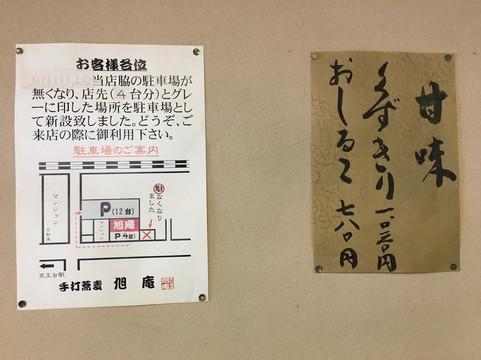 お客様各位
当店脇の駐車場が
無くなり、店先(4台分)とグレ
ーに印した場所を駐車場とし
て新設致しました。どうぞ、ご
来店の際に御利用下さい。
駐車場のご案内
マンション
P(12台)
旭庵
P 4台
マンション
駐
なくなり
ました
天王台駅
手打蕎麦 旭庵
甘味
くずきり 一、〇三〇円
おしるこ 七八〇円